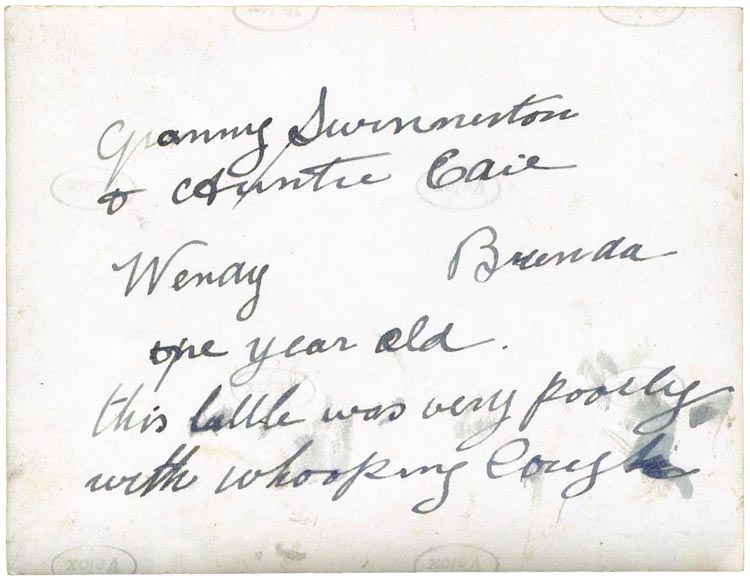 Granny Swinnerton
& Auntie Caie
Wendy Brenda
one year old.
this little was very poorly
with whooping Cough
Velox
Velox
Velox
Velox